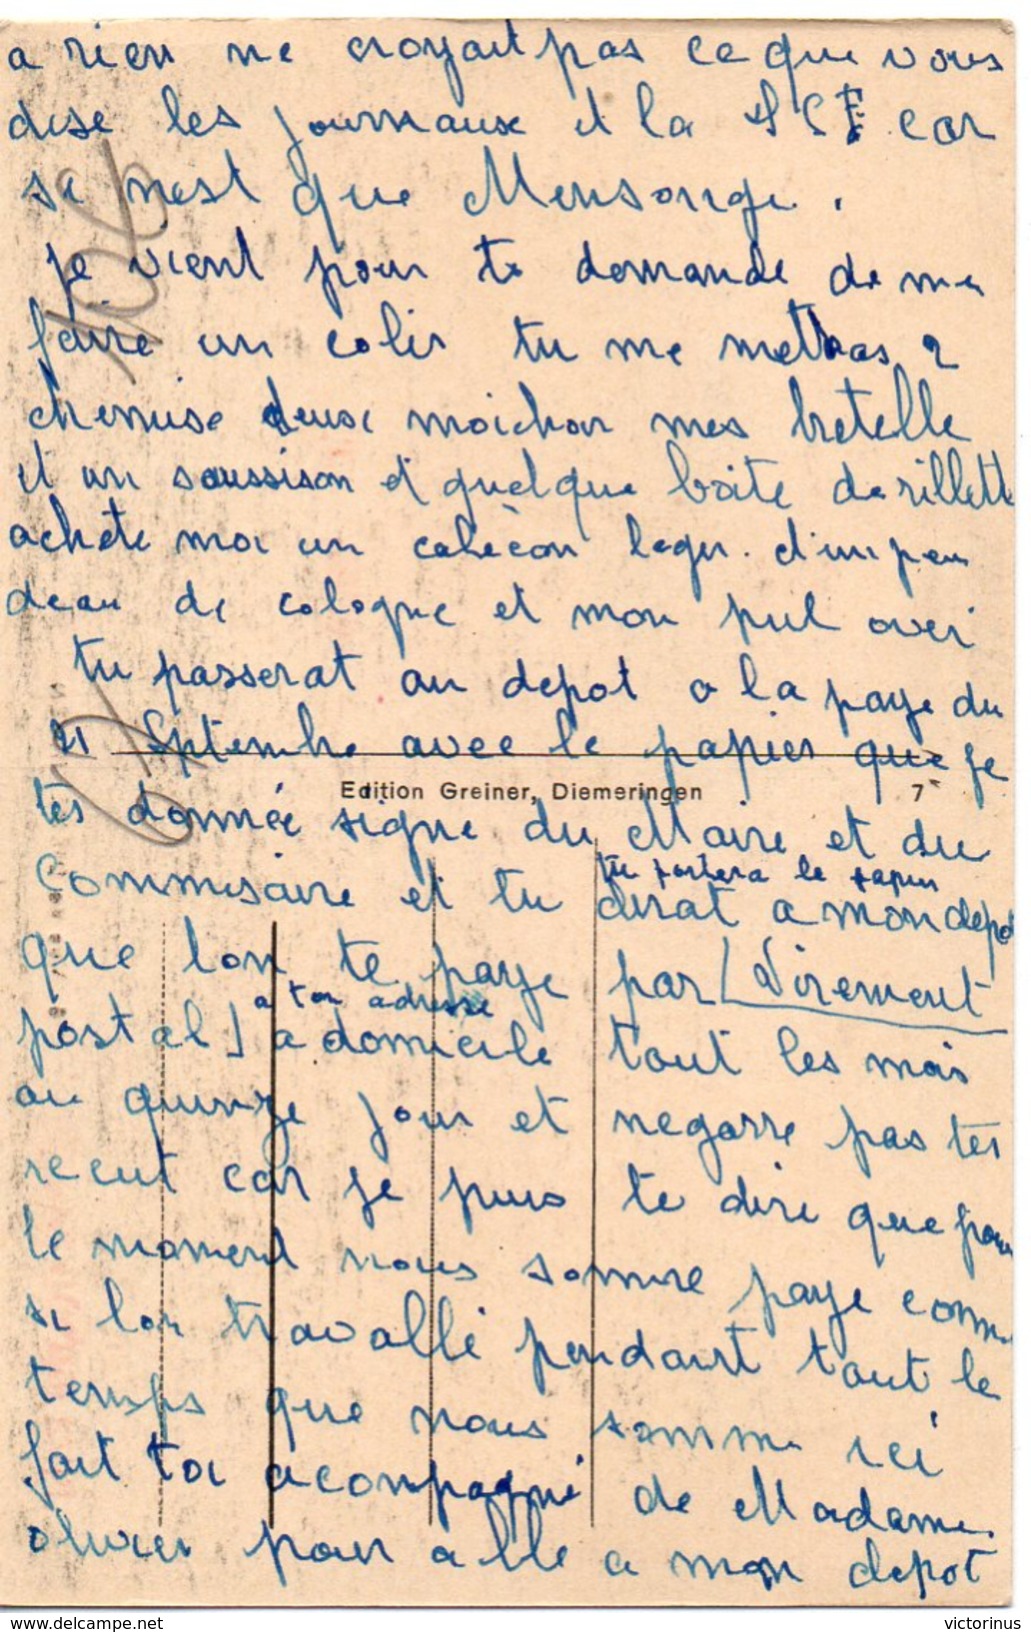 a rien ne croyait pas ce que vous
dise les journaux et la car
se n'est que Mensonge.
je vient pour te demande de me
faire un colis tu me mettras 2
chemise deux moichoir mes bretelle
et un soussison et quelque boite de rillette
achete moi un caleçon leger. d'un peu
deau de cologne et mon pul over
tu passerat au depot a la paye du
21 Sptembre avec le papier que je
Edition Greiner, Diemeringen 7
tes donnée signe du Maire et du
Commisaire et tu dirat a mon depot
tu portera le papier
que lon te paye par Virement
postal a domicile tout les mois
a ton adresse
ou quinze jour et negarre pas tes
recut car je puis te dire que pour
le moment nous somme paye comme
si lon travallé pendant tout le
temps que nous somme ici
fait toi acompagné de Madame
olivier pour allé a mon depot
106
67
victorinus